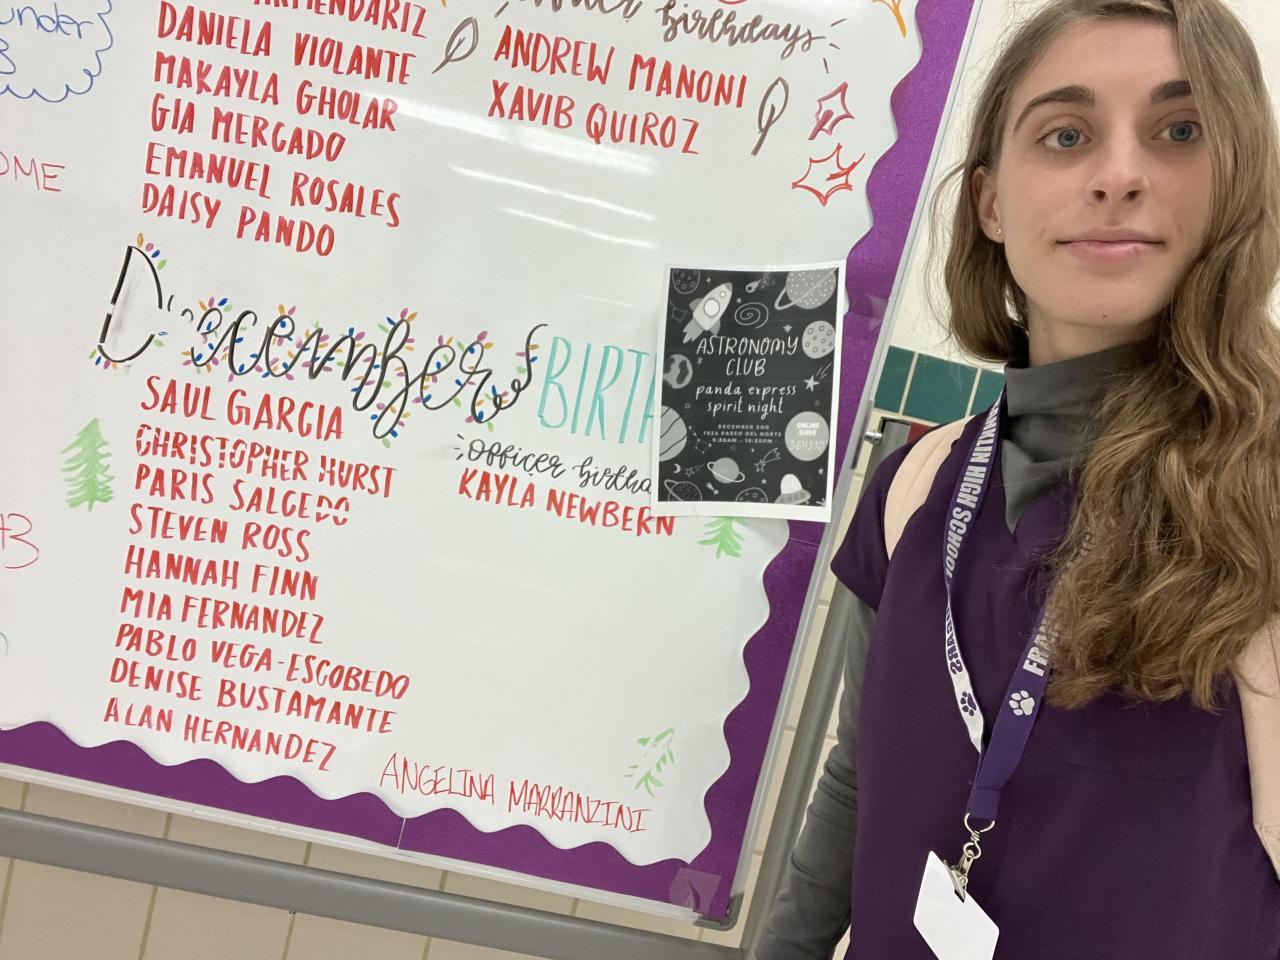 under
ARMENDARIZ
DANIELA VIOLANTE
MAKAYLA GHOLAR
GIA MERCADO
EMANUEL ROSALES
DAISY PANDO
birthdays
ANDREW MANONI
XAVIB QUIROZ
OME
December's BIRT
SAUL GARCIA
CHRISTOPHER HURST
PARIS SALCEDO
STEVEN ROSS
HANNAH FINN
MIA FERNANDEZ
PABLO VEGA-ESCOBEDO
DENISE BUSTAMANTE
ALAN HERNANDEZ
ANGELINA MARRANZINI
officer birthda
KAYLA NEWBERN
ASTRONOMY
CLUB
panda express
spirit night
DECEMBER 2ND
7934 PASEO DEL NORTE
9:30AM - 10:30PM
ONLINE
CODE
364310
FRANKLIN HIGH SCHOOL
COUGARS
FRAN